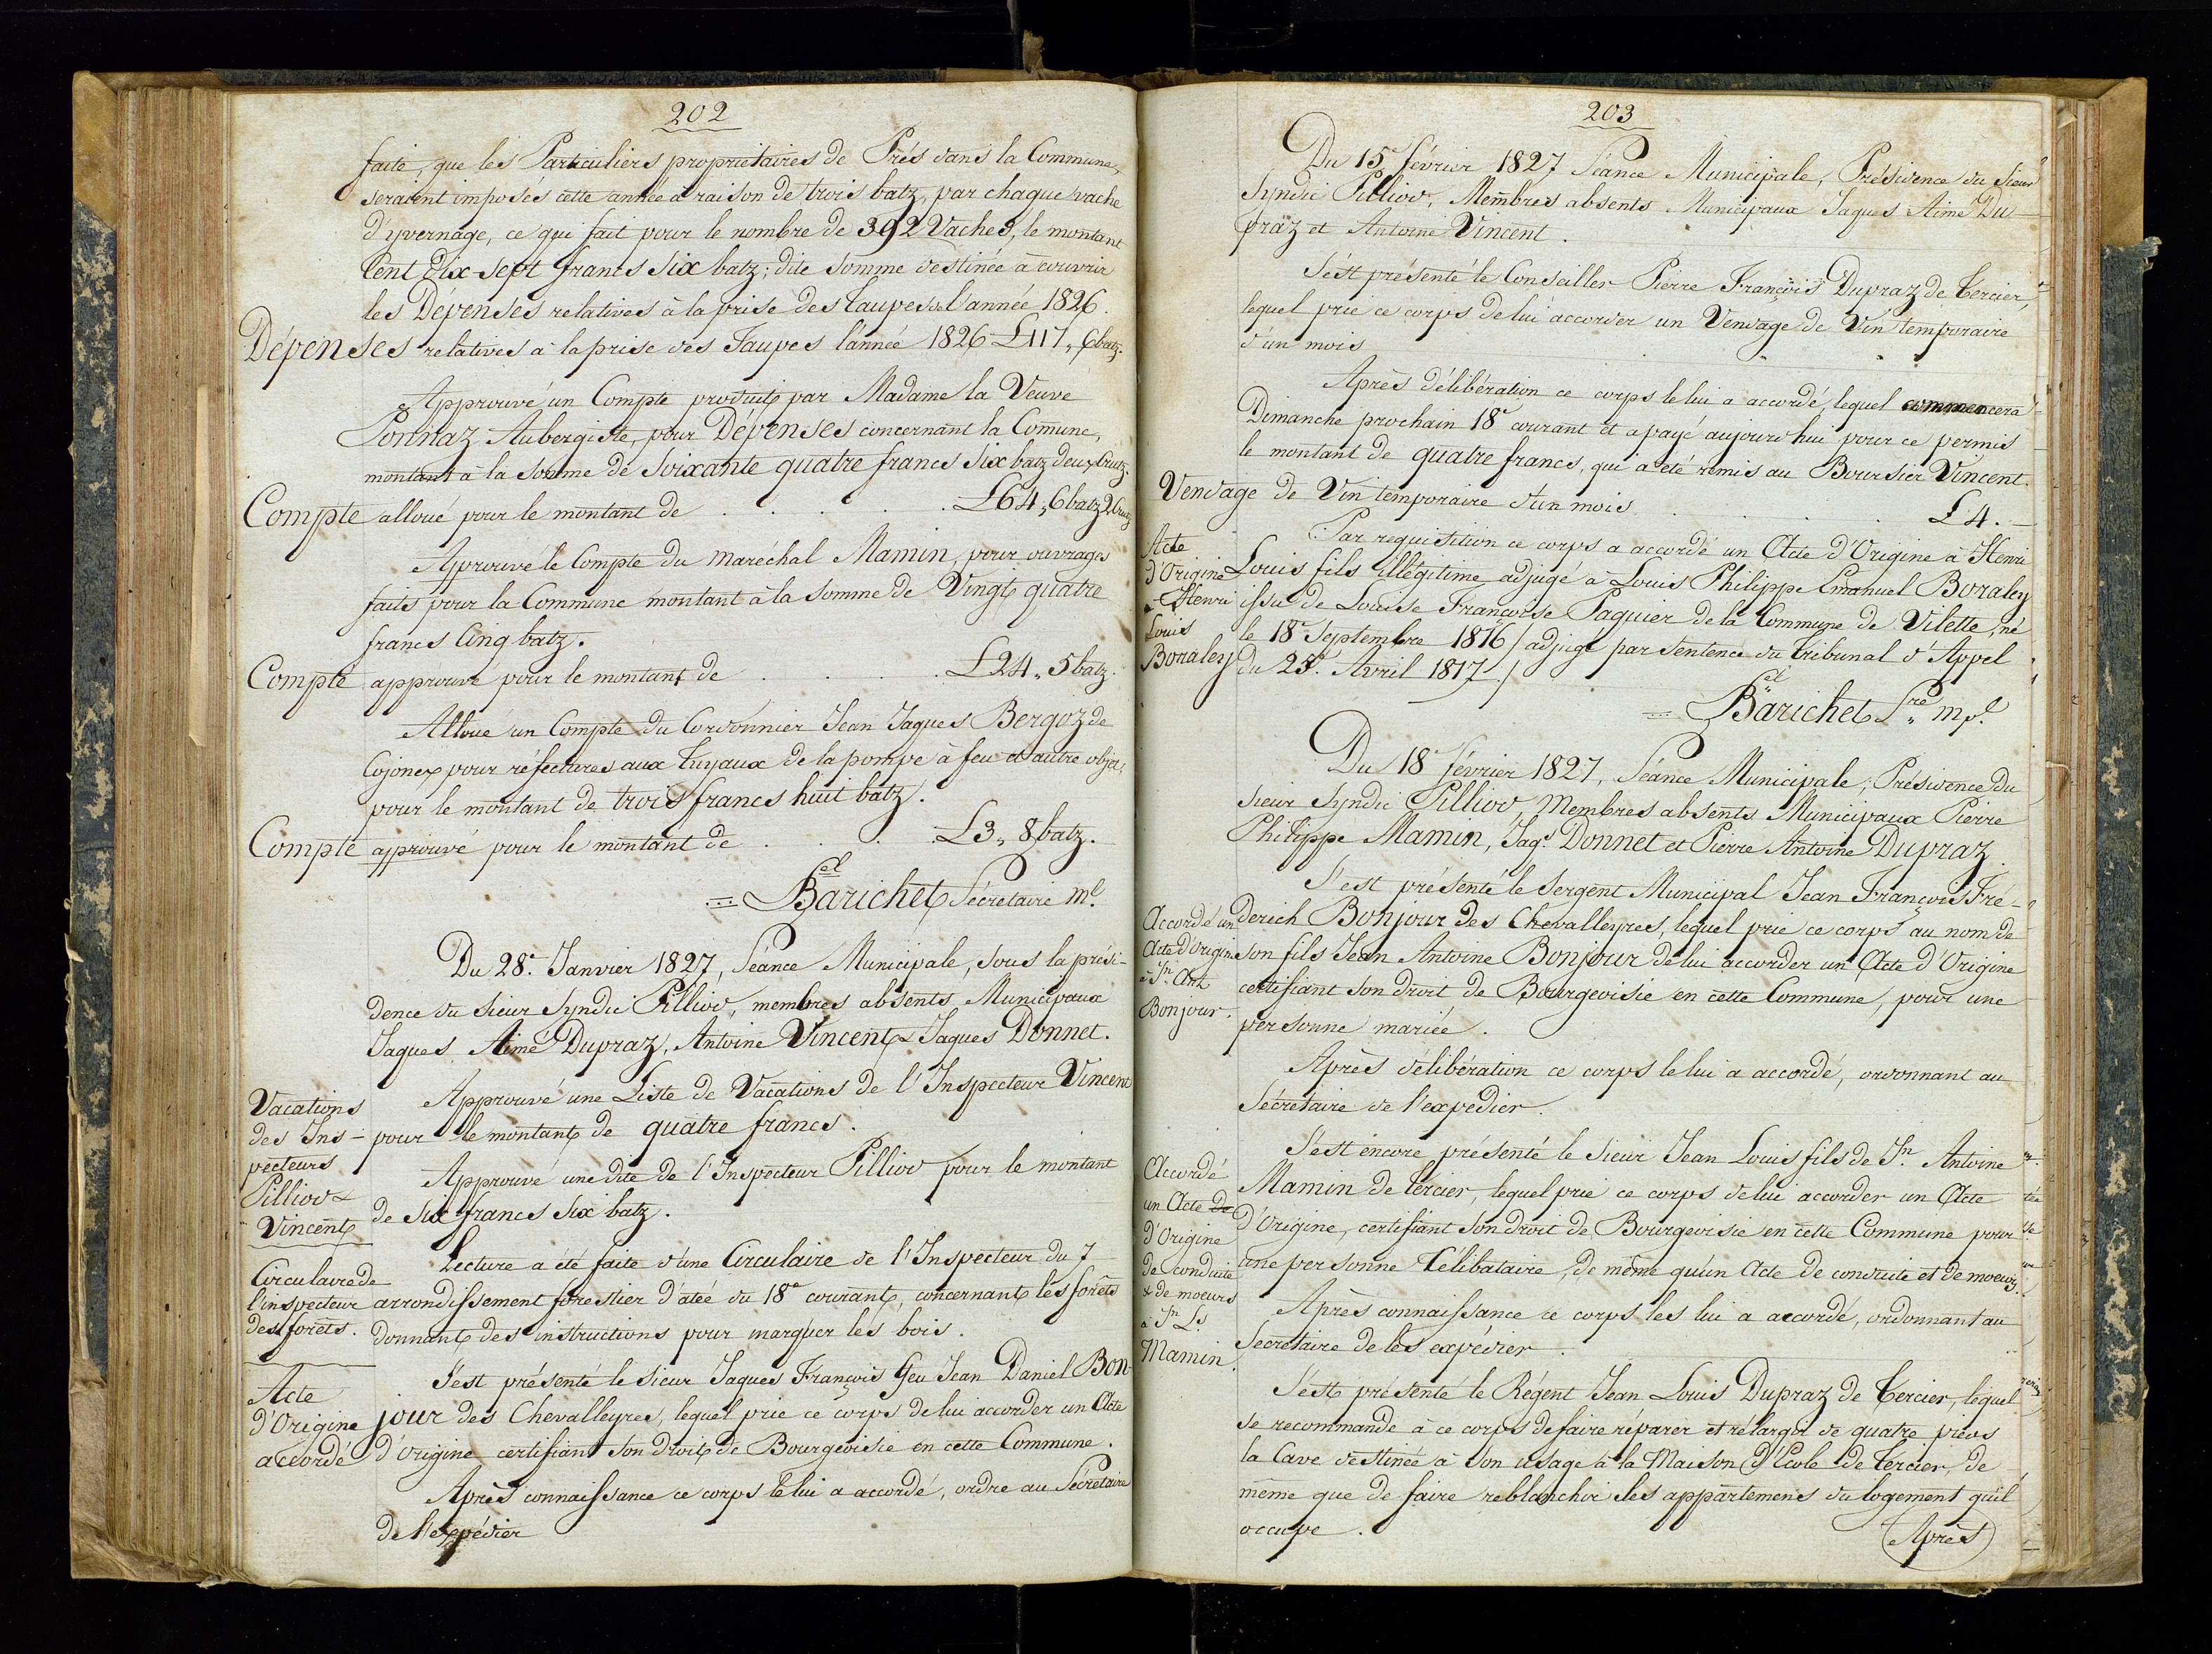 202
faite, que les Particuliers propriétaires de Prés dans la Commune,
seraient imposés cette année à raison de trois batz, par chaque vache
d'yvernage, ce qui fait pour le nombre de 392 Vaches, le montant
Cent Dix-sept francs six batz; dite somme destinée à couvrir
les Dépenses relatives à la prise des Taupes de l'année 1826.
Dépenses relatives à la prise des Taupes l'année 1826 £117,, 6 batz.
Approuvé un Compte produit par Madame la Veuve
Ponnaz Aubergiste, pour Dépenses concernant la Comune,
montant à la somme de Soixante quatre francs Six batz deux Crutz.
Compte alloué pour le montant de . . . . . £64,, 6 batz 2 Crutz
Approuvé le Compte du maréchal Mamin, pour ouvrages
faits pour la Commune montant à la somme de Vingt quatre
francs Cinq batz.
Compte approuvé pour le montant de . . . . £24,, 5 batz.
Alloué un Compte du Cordonnier Jean Jaques Bergoz de
Cojonex pour réfectures aux Tuyaux de la pompe à feu et autre objet,
pour le montant de trois francs huit batz.
Compte approuvé pour le montant de . . . . £3,, 8 batz.
Barichet Sécretaire ml.
Du 28e. Janvier 1827, Séance Municipale, sous la prési-
dence du sieur Syndic Pilliod, membres absents Municipaux
Jaques Aimé Dupraz, Antoine Vincent & Jaques Donnet.
Vacations
des Ins-
pecteurs
Pilliod &
Vincent
Approuvé une Liste de Vacations de l'Inspecteur Vincent
pour le montant de quatre francs.
Approuvé une dite de l'Inspecteur Pilliod pour le montant
de Six francs Six batz.
Circulaire de
l'inspecteur
des forêts.
Lecture a été faite d'une Circulaire de l'Inspecteur du 7
arrondissement forestier d'atée du 18e courant, concernant les forêts
donnant des instructions pour marquer les bois.
Acte
d'Origine
accordé
S'est présenté le sieur Jaques François feu Jean Daniel Bon-
jour des Chevalleyres, lequel prie ce corps de lui accorder un Acte
d'Origine certifiant son droit de Bourgeoisie en cette Commune.
Après connaissance ce corps le lui a accordé, ordre au Sécretaire
de l'expédier
203
Du 15e février 1827 Séance Municipale, Présidence du Sieur
Syndic Pilliod, Membres absents Municipaux Jaques Aimé Du-
praz et Antoine Vincent.
S'est présenté le Conseiller Pierre François Dupraz de Tercier,
lequel prie ce corps de lui accorder un Vendage de Vin temporaire
d'un mois
Après délibération ce corps le lui a accordé, lequel commencera
Dimanche prochain 18e courant et a payé aujourd'hui pour ce permis
le montant de quatre francs, qui a été remis au Boursier Vincent.
Vendage de Vin temporaire d'un mois . . . . £4.-
Acte
d'Origine
à Henri
Louis
Boraley
Par requisition ce corps a accordé un Acte d'Origine à Henri
Louis fils illégitime adjugé à Louis Philippe Emanuel Boraley
issu de Louise Françoise Paquier de la Commune de Vilette, né
le 18e Septembre 1816 / adjugé par Sentence du Tribunal d'Appel
du 25e Avril 1817 /
Barichet Sre mpl.
Du 18e février 1827, Séance Municipale, Présidence du
sieur Syndic Pilliod Membres absents Municipaux Pierre
Philippe Mamin, Jaqs Donnet et Pierre Antoine Dupraz.
Accordé un
Acte d'Origine
à Jn. Ant
Bonjour.
S'est présenté le Sergent Municipal Jean François Fré-
derich Bonjour des Chevalleyres, lequel prie ce corps au nom de
son fils Jean Antoine Bonjour de lui accorder un Acte d'Origine
certifiant son droit de Bourgeoisie en cette Commune, pour une
personne mariée.
Après délibération ce corps le lui a accordé, ordonnant au
Sécretaire de l'expédier.
Accordé
un Acte de
d'Origine
de conduite
& de moeurs
à Jn Ls
Mamin.
S'est encore présenté le sieur Jean Louis fils de Jn. Antoine
Mamin de Tercier, lequel prie ce corps de lui accorder un Acte
d'Origine, certifiant son droit de Bourgeoisie en cette Commune pour
une personne Célibataire, de même qu'un Acte de conduite et de moeurs.
Après connaissance ce corps les lui a accordé, ordonnant au
Secretaire de les expédier.
S'est présenté le Régent Jean Louis Dupraz de Tercier, lequel
se recommande à ce corps de faire réparer et rélargir de quatre pieds
la Cave destinée à son usage à la Maison d'Ecole de Tercier, de
même que de faire reblanchir les appartemens du logement qu'il
occupe.
Après